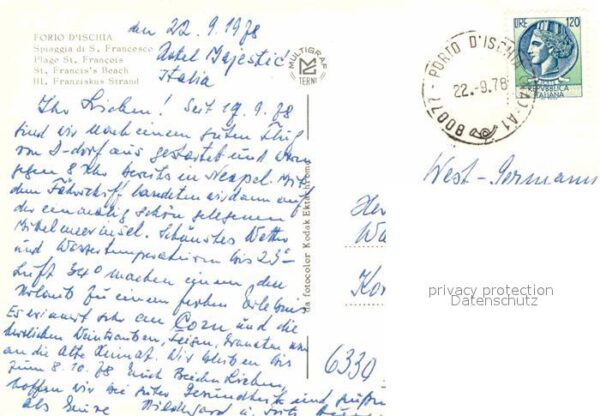 FORIO D'ISCHIA
Spiaggia di S. Francesco
Plage St. François
St. Francis's Beach
Hl. Franziskus Strand
den 22.9.1978
Hotel Majestic
Italia
Ihr Lieben! Seit 19.9.78
sind wir nach einem guten Flug
von D-dorf aus gestartet und waren
gegen 8 Uhr bereits in Neapel. Mit
dem Fährschiff landeten wir dann auf
der einmalig schön gelegenen
Mittelmeerinsel. Schönstes Wetter
und Wassertemperaturen bis 23°
Luft 30° machen einem den
Urlaub zu einem frohen Erlebnis.
Es erinnert sehr an und die
herrlichen Weintrauben, Feigen, Granaten
an die Alte Heimat. Wir bleiben bis
zum 8.10.78 Euch Beiden Lieben,
hoffen wir bei guter Gesundheit und grüßen
als Eure Hildegard u.
MULTIGRAF
TERNI
da fotocolor Kodak Ektachrome
80077 - PORTO D'ISCHIA (NA) - A1
22.-9.78
LIRE 120
REPUBBLICA
ITALIANA
West-Germany
Her
Ko
6330
privacy protection
Datenschutz